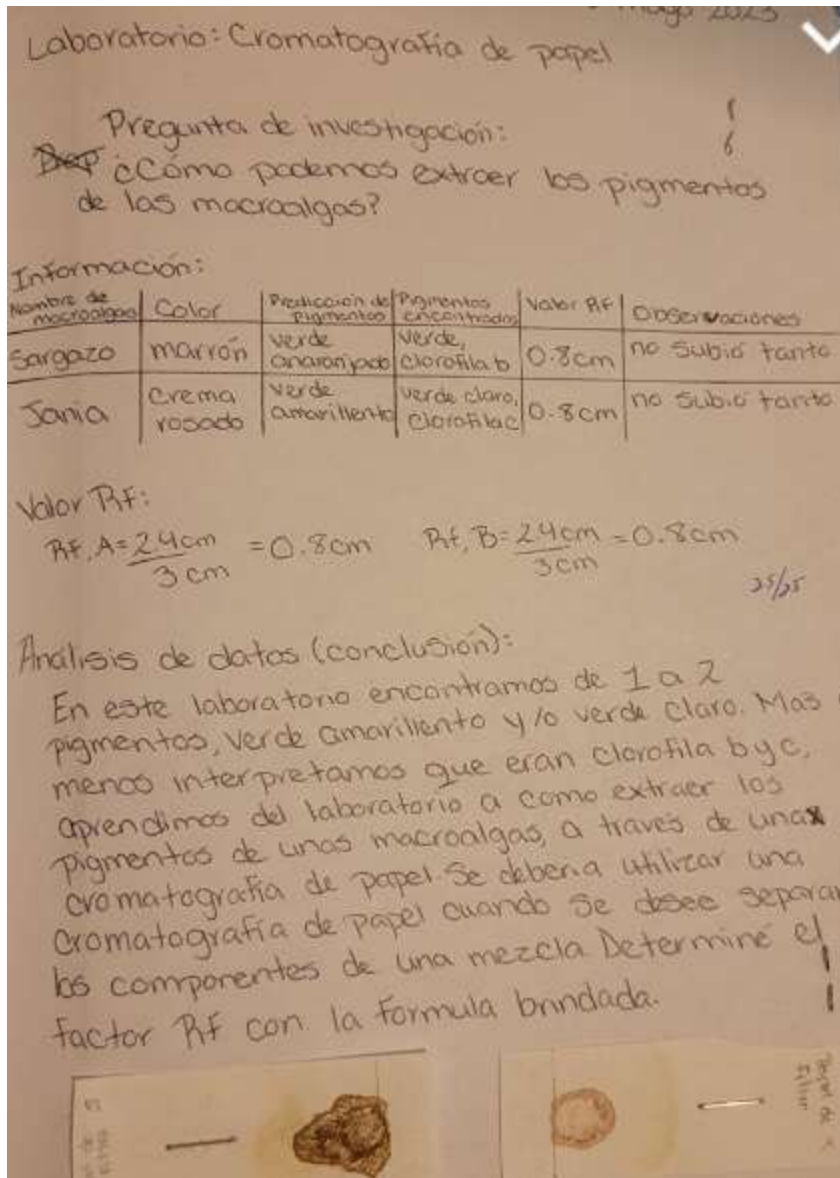 mayo 2023
Laboratorio: Cromatografía de papel
Pregunta de investigación:
¿Cómo podemos extraer los pigmentos
de las macroalgas?
Información:
Nombre de macroalgas | Color | Predicción de Pigmentos | Pigmentos encontrados | Valor Rf | Observaciones
Sargazo | marrón | verde anaranjado | verde, clorofila b | 0.8cm | no subió tanto
Jania | crema rosado | verde amarillento | verde claro, clorofila c | 0.8cm | no subió tanto
Valor Rf:
Rf, A = 2.4cm / 3cm = 0.8cm Rf, B = 2.4cm / 3cm = 0.8cm
25/25
Análisis de datos (conclusión):
En este laboratorio encontramos de 1 a 2
pigmentos, verde amarillento y/o verde claro. Mas
menos interpretamos que eran clorofila b y c,
aprendimos del laboratorio a como extraer los
pigmentos de unas macroalgas, a través de una
cromatografía de papel. Se debería utilizar una
cromatografía de papel cuando se desee separar
los componentes de una mezcla. Determiné el
factor Rf con la formula brindada.
Papel de
filtro